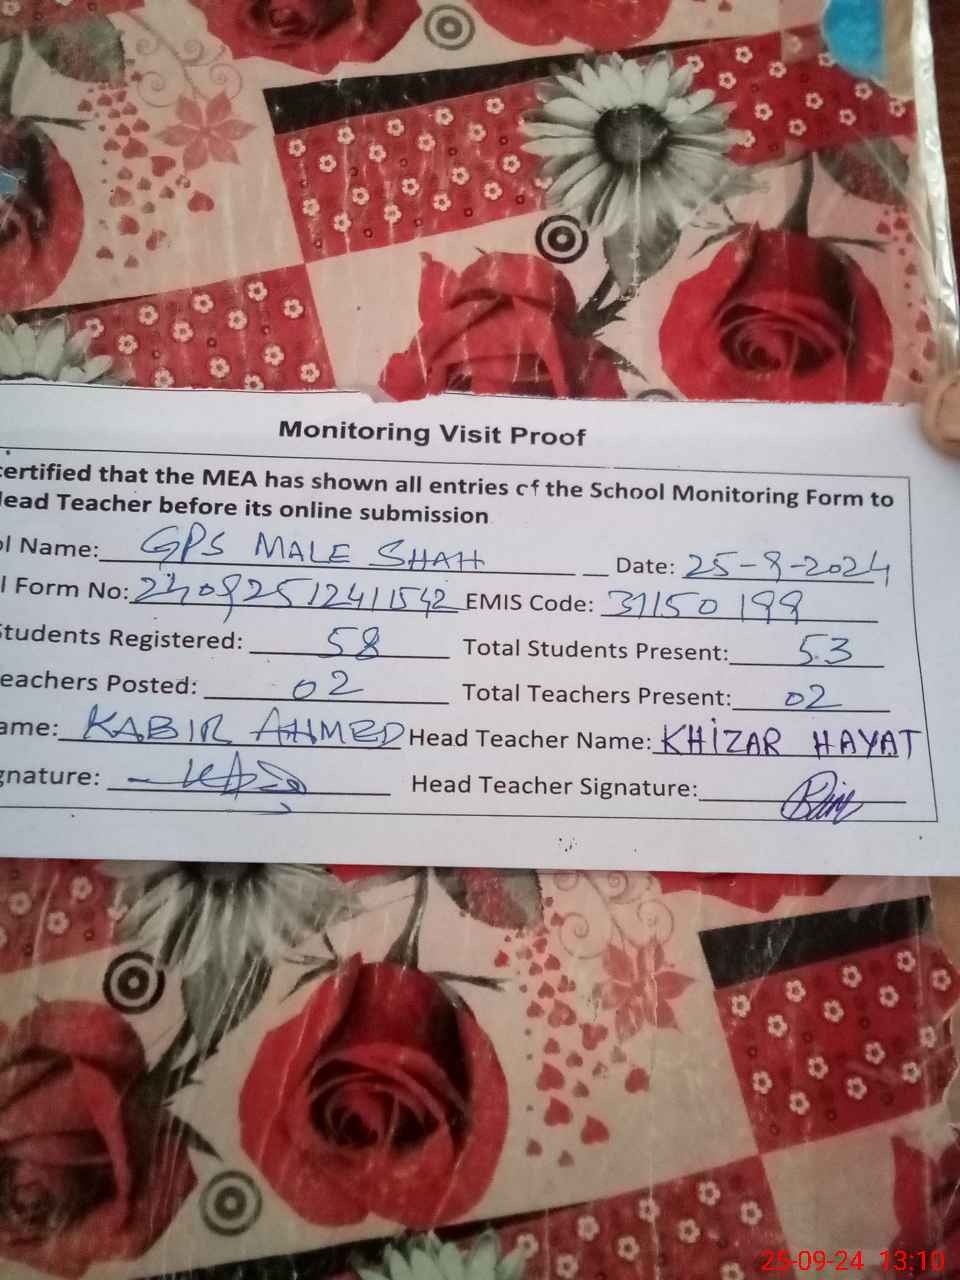 Monitoring Visit Proof
certified that the MEA has shown all entries of the School Monitoring Form to
Head Teacher before its online submission
ol Name: GPS MALE SHAH Date: 25-9-2024
l Form No: EMIS Code: 31150199
Students Registered: 58 Total Students Present: 53
eachers Posted: 02 Total Teachers Present: 02
ame: KABIR AHMED Head Teacher Name: KHIZAR HAYAT
gnature: Head Teacher Signature:
25-09-24 13:10